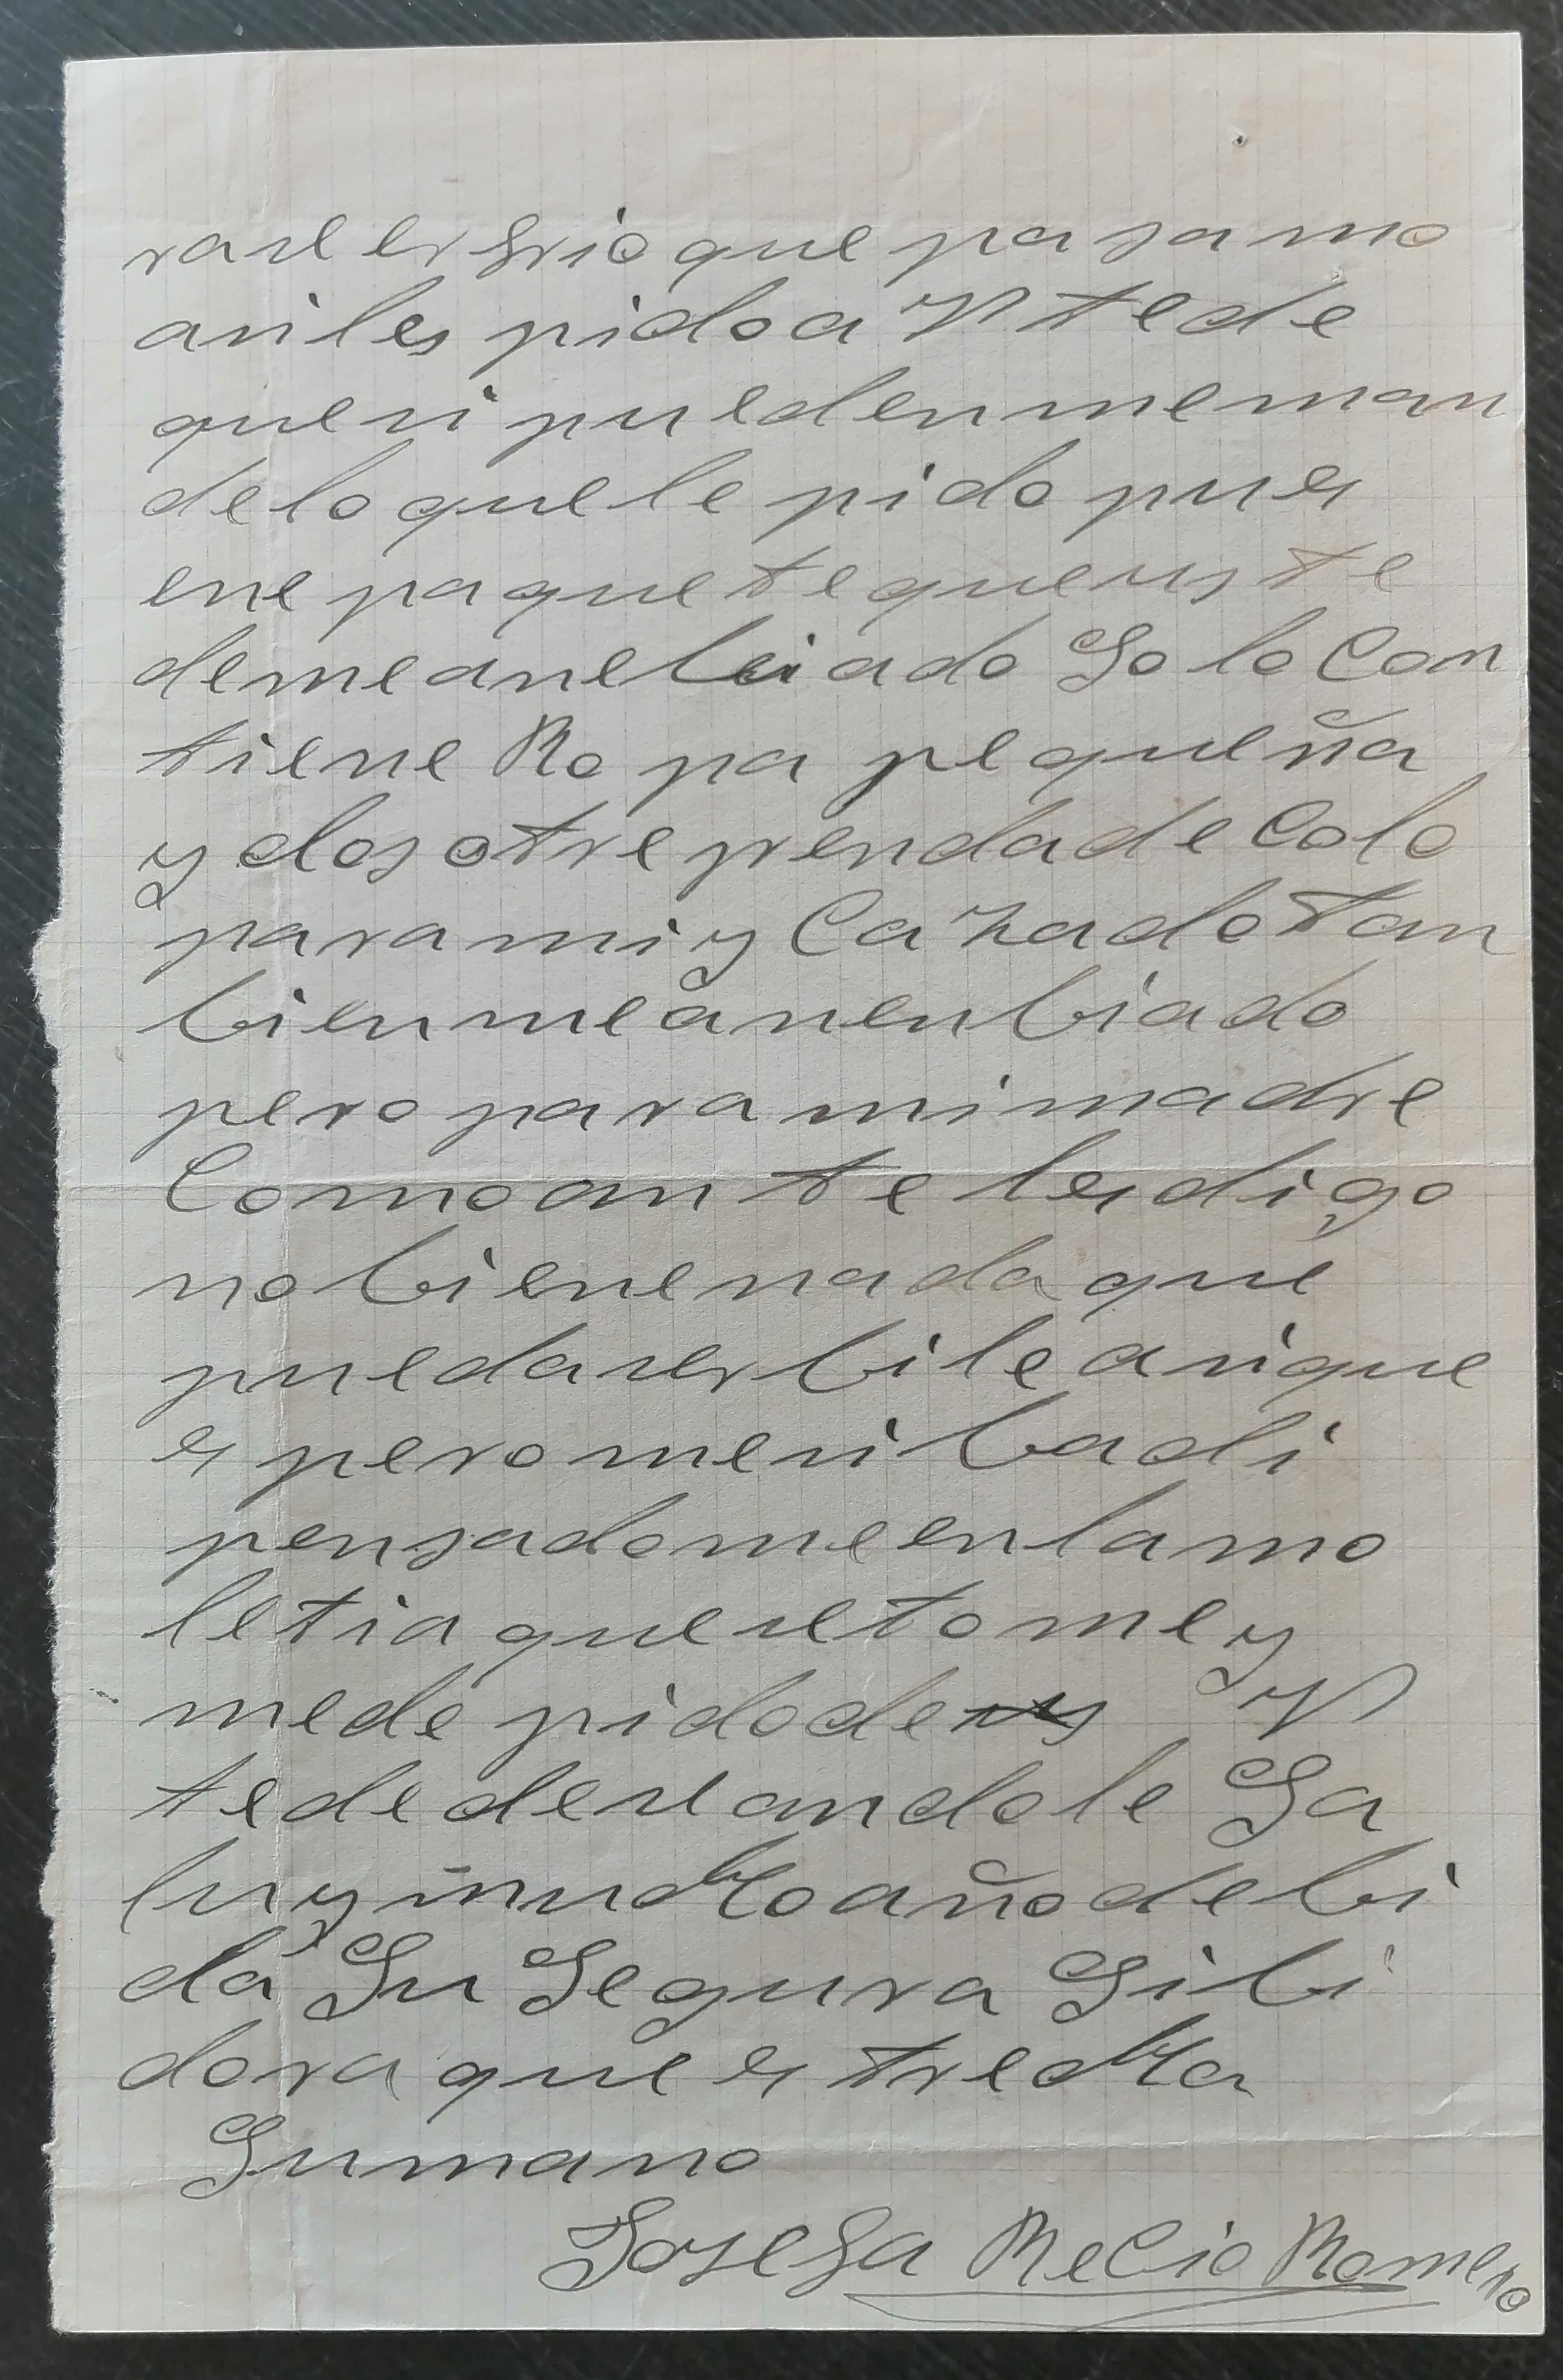 rase er frio que pasamo
asi les pido a Vstede
que si pueden me man
de lo que le pido pues
ese paquete que uste
de me an enbiado Solo Con
tiene Ropa pequeña
y dos o tre prenda de Colo
para mi y Cazado tan
bien me an enbiado
pero para mi madre
Como ante les digo
no biene nada que
pueda serbile asi que
espero me sibadi
pensadome en la mo
letia que se tome y
me depido de Vs
tede deseandole Sa
lu y mucho año de bi
da Su Segura Sibi
dora que estrecha
Su mano
Josefa Recio Romero